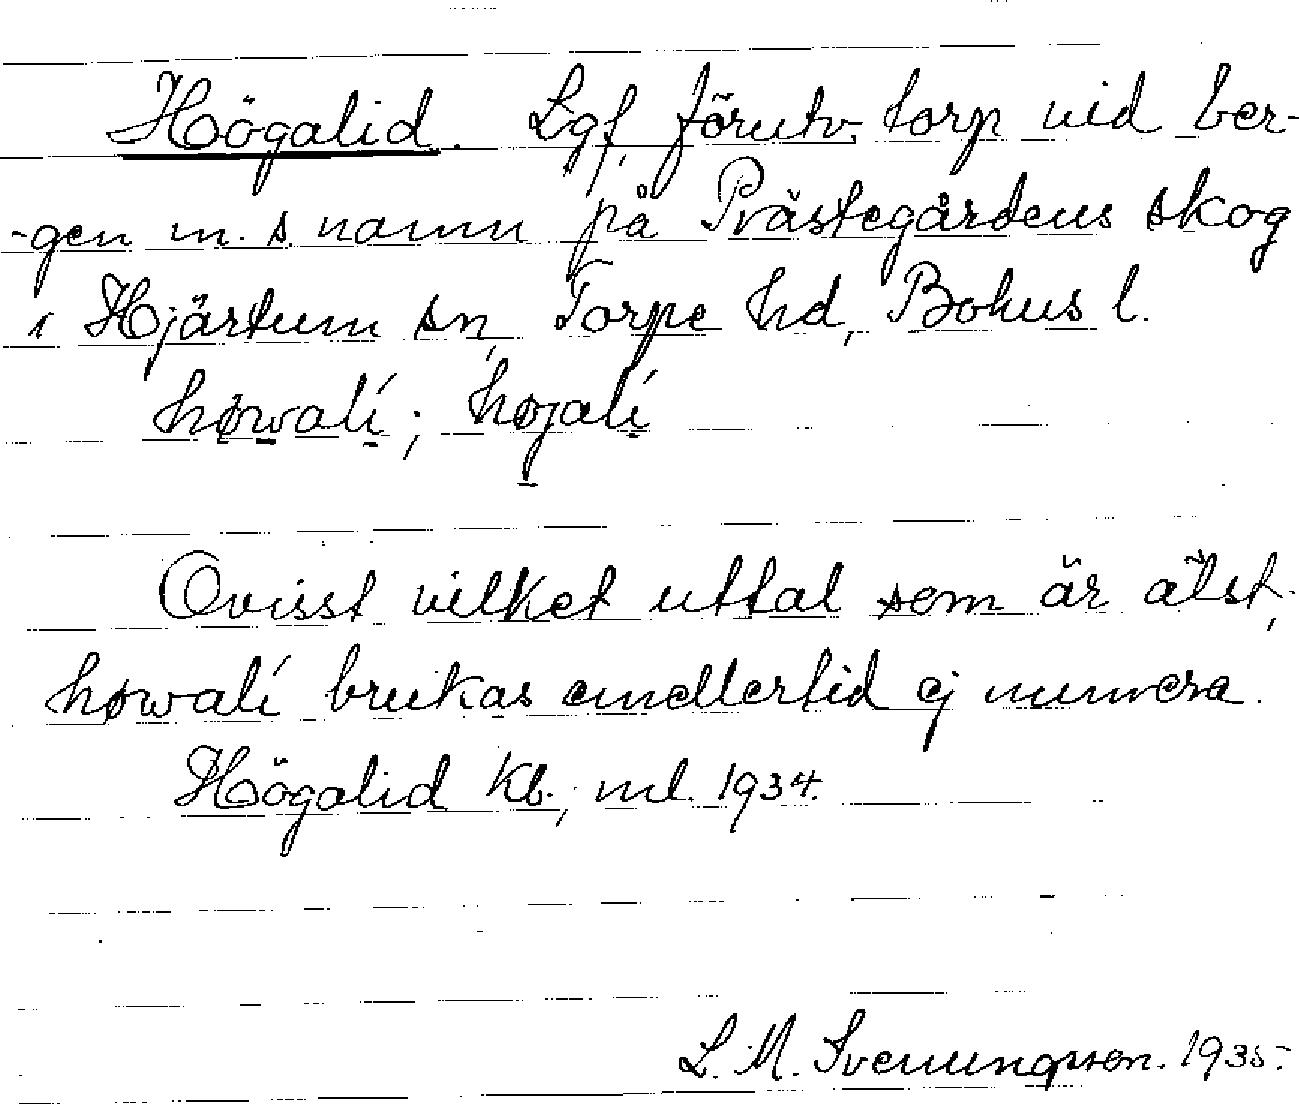 Högalid. Lgf, förutv. torp vid ber-
-gen m. s. namn på Prästegårdens skog
i Hjärtum sn, Torpe hd, Bohus l.
høwalí; højalí
Ovisst vilket uttal som är älst,
høwalí brukas emellertid ej numera.
Högalid Kb., ml. 1934.
L. M. Svenungsson. 1935.